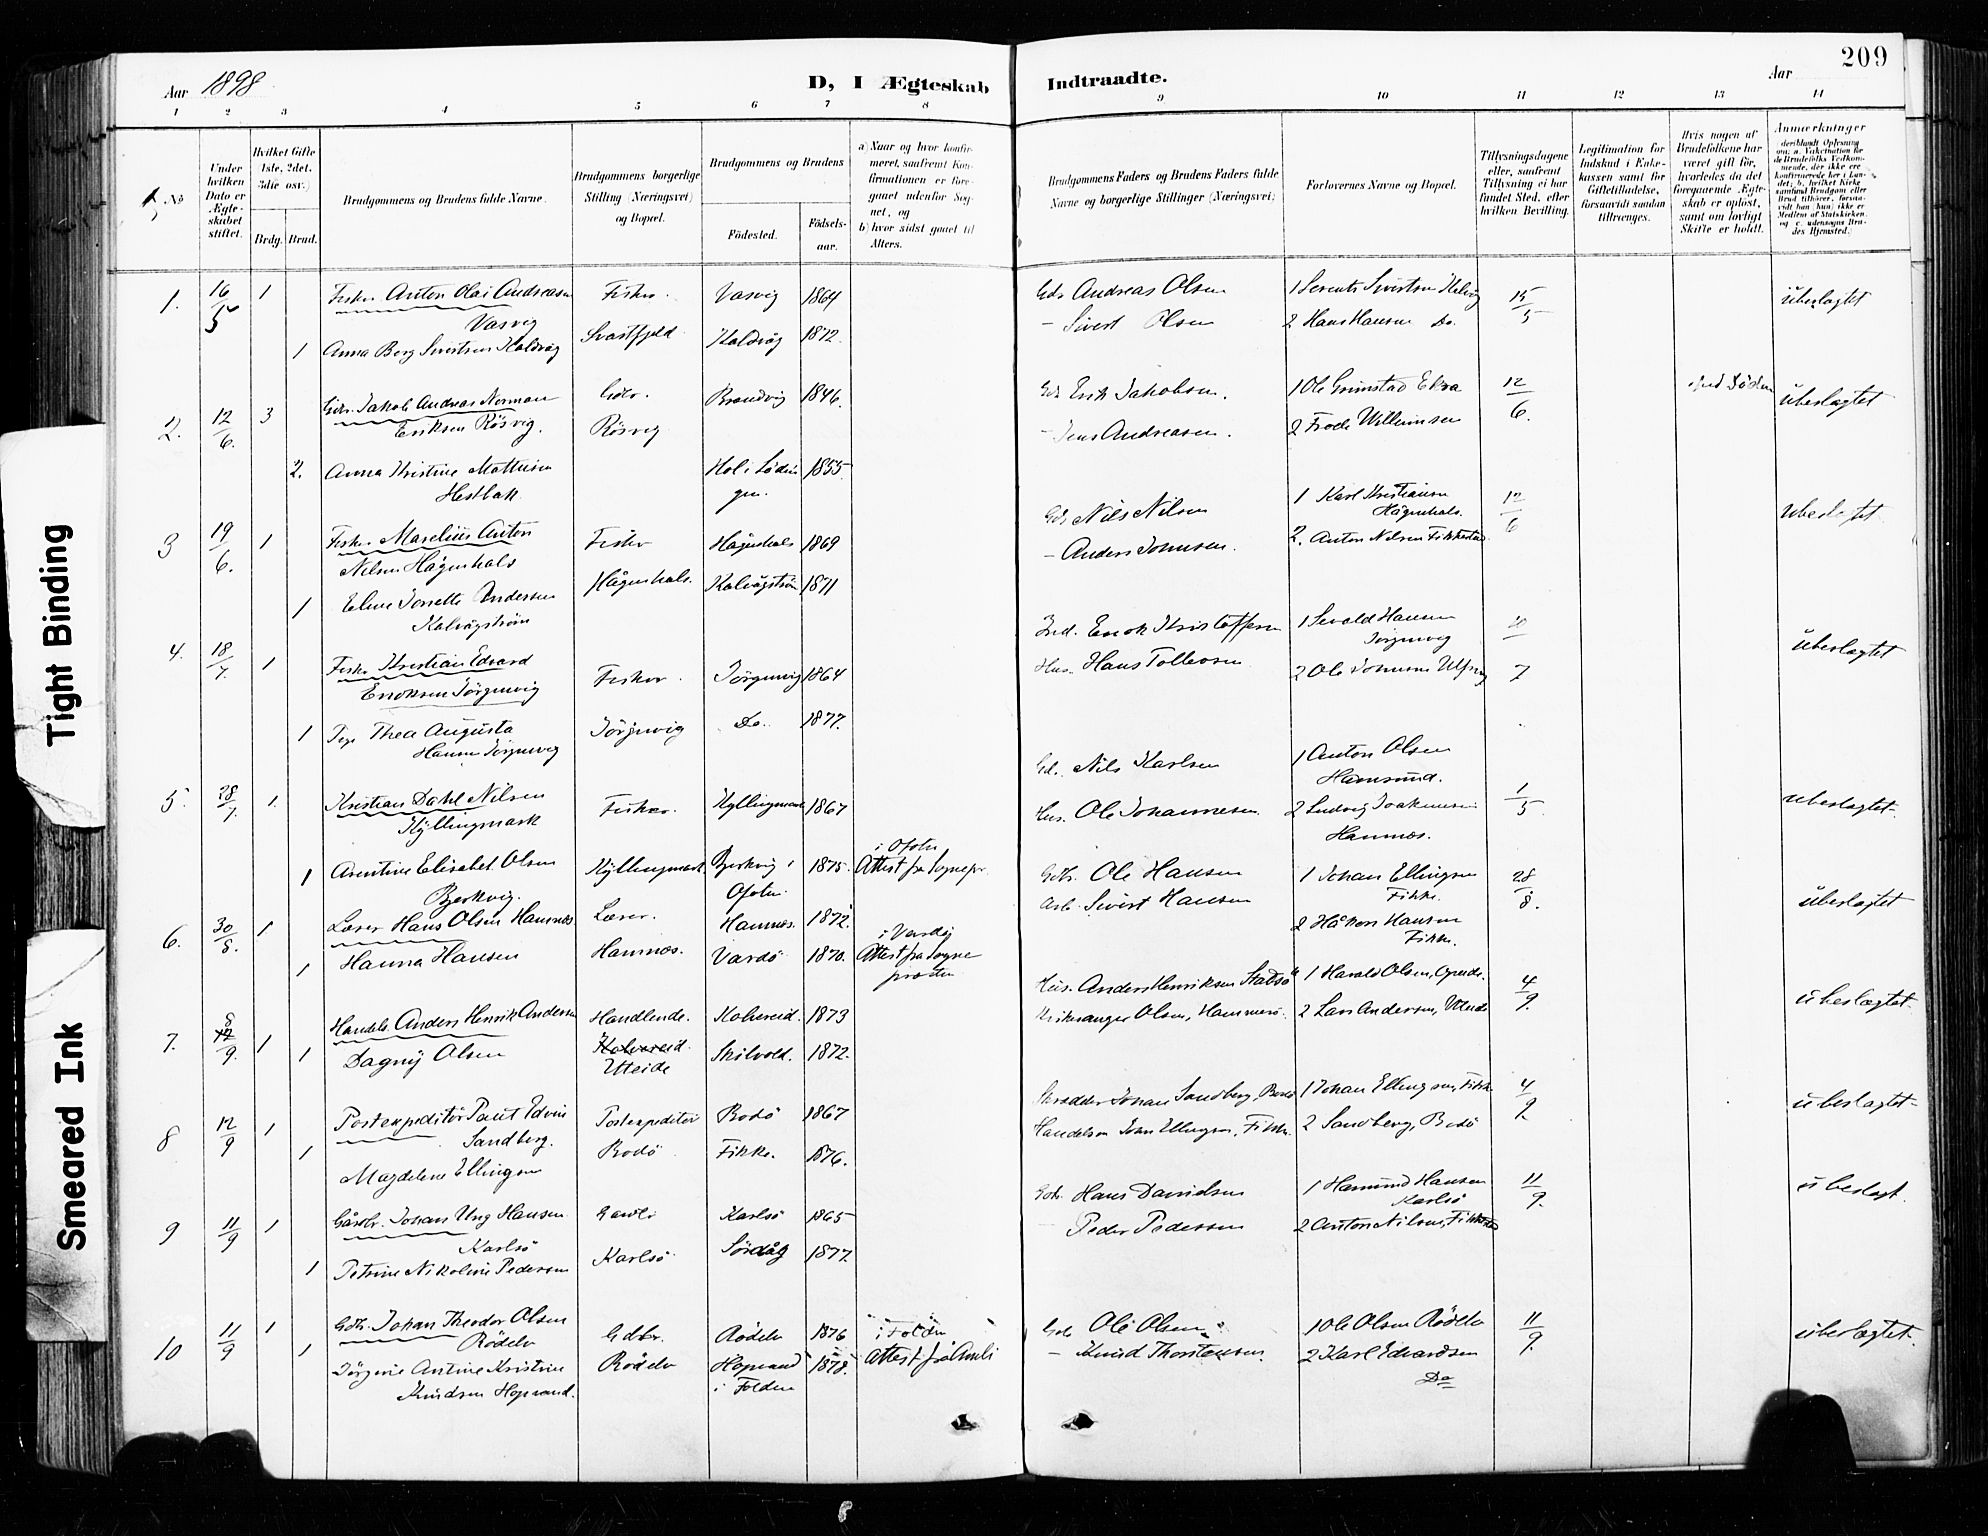 Aar 1898
D, I Ægteskab Indtraadte.
Aar
209
1 2 3 4 5 6 7 8 9 10 11 12 13 14
No
Under hvilken Dato er Ægteskabet stiftet.
Hvilket Gifte 1ste, 2det, 3die osv.)
Brdg. Brud.
Brudgommens og Brudens fulde Navne.
Brudgommens borgerlige Stilling (Næringsvei) og Bopæl.
Brudgommens og Brudens
Fødested.
Fødselsaar.
a) Naar og hvor konfirmeret, saafremt Konfirmationen er foregaaet udenfor Sognet, og
b) hvor sidst gaaet til Alters.
Brudgommens Faders og Brudens Faders fulde Navne og borgerlige Stillinger (Næringsvei)
Forlovernes Navne og Bopæl.
Tillysningsdagene eller, saafremt Tillysning ei har fundet Sted, efter hvilken Bevilling.
Legitimation for Indskud i Enkekassen samt for Giftetilladelse, forsaavidt saadan tiltrænges.
Hvis nogen af Brudefolkene har været gift før, hvorledes da det foregaaende Ægteskab er opløst, samt om lovligt Skifte er holdt.
Anmærkninger
deriblandt Oplysning om: a. Vakcination for de Brudefolks Vedkommende, der ikke ere konfirmerede her i Landet; b. hvilket Kirkesamfund Brudgom eller Brud tilhører, forsaavidt han (hun) ikke er Medlem af Statskirken, og c. udensogns Brudes Hjemsted.)
1. 16/5 1 Fisker Anton Olai Andreasen Fisker. Vasvig 1864 Gdr Andreas Olsen 1 Sivertsen 15/5 übeslægtet
Vasvig
1 Anna Berg Sivertsen Svartfjeld 1872. - Sivert Olsen 2 Hans Hansen Do.
2. 12/6. 3 Gdr. Jakob Andreas Norman Gdr. Brandvig 1846. Gdr Erik Jakobsen. 1 Ole Grimstad 12/6. ved Döden übeslægtet
Eriksen Rösvig. Rösvig - Jens Andreasen. 2 Frode Willumsen
2. Anna Kristine Mathisen Hol i Lödingen. 1855.
3 19/6. 1 Fisker Marelius Anton Fisker Hågenhals 1869 Gdr Nils Nilsen 1 Karl Kristiansen Hågenhals. 12/6 übeslægtet
Nilsen Hågenhals
1 Andersen Hågenhals. Kalvågström 1871 - Anders Johnsen. 2. Anton Nilsen
Kalvågström
4. 18/7. 1 Fisker Kristian Edvard Fisker. Jörgenvig 1864 Ind. Enok Kristoffersen 1 Sevald Hansen Jörgenvig 7 übeslægtet
Enoksen Jörgenvig
1 Pige Thea Augusta Jörgenvig Do. 1877. Hus. Hans Tollevsen 2 Ole Johnsen
Hansen Jörgenvig
5. 28/7. 1. Kristian Dahl Nilsen Fisker. Kyllingmark 1867 Gd. Nils Karlsen 1 Anton Olsen Hamsund. 1/5 übeslægtet.
Kyllingmark
1 Arentine Elisabet Olsen Kyllingmark. Bjerkvig i Ofoten. 1875. Attest fra Sognepr. i Ofoten Hus. Ole Johannesen 2 Ludvig Joakimsen Hamnæs.
Bjerkvig.
6. 30/8. 1 Lærer Hans Olsen Hamnæs Lærer. Hamnæs. 1872. Gdbr. Ole Hansen 1 Johan Ellingsen Fikke. 28/8. übeslægtet
1 Hanna Hansen Hamnæs. Vardö 1870. Attest fra Sognepresten i Vardö Arb. Sivert Hansen 2 Håkon Hansen Fikke.
7. 8/9. 1 Handels. Anders Henrik Andersen Handlende. Kolvereid. 1873 Hus. Anders Henriksen 1 Harald Olsen, 4/9. übeslægtet.
1 Dagny Olsen Kolvereid. Uteide 1872. Olsen, Hammerö. 2 Lars Andersen, Uteide
8 12/9 1 Postexpeditör Paul Edvin Postexpeditör Bodö 1867 Skrædder Johan Sandberg, Bodö 1 Johan Ellingsen, Fikke 4/9 übeslægtet.
Sandberg.
1 Magdelene Ellingsen Bodö Fikke. 1876. Handelsm John Ellingsen, Fikke. 2 Sandberg, Bodö
9 11/9 1 Gårdbr. Johan Ung Hansen Gaardbr Karlsö 1865 Gdr. Hans Davidsen 1 Hansen Karlsö 11/9. übeslægt.
Karlsö
1 Petrine Nikoline Pedersen Karlsö Sördåg 1877. Peder Pedersen 2 Anton Nilsen,
10 11/9 1 Gdb. Johan Theodor Olsen Gdbr. Rödelv 1876 Gdr Ole Olsen 1 Ole Olsen Rödelv 11/9. übeslægtet.
Rödelv
1 Jörgine Antine Kristine Rödelv Hopvand i Folden 1878. i Folden Attest - Knud Thorstensen. 2 Karl Edvardsen Do
Knudsen Hopvand.
Tight Binding
Smeared Ink